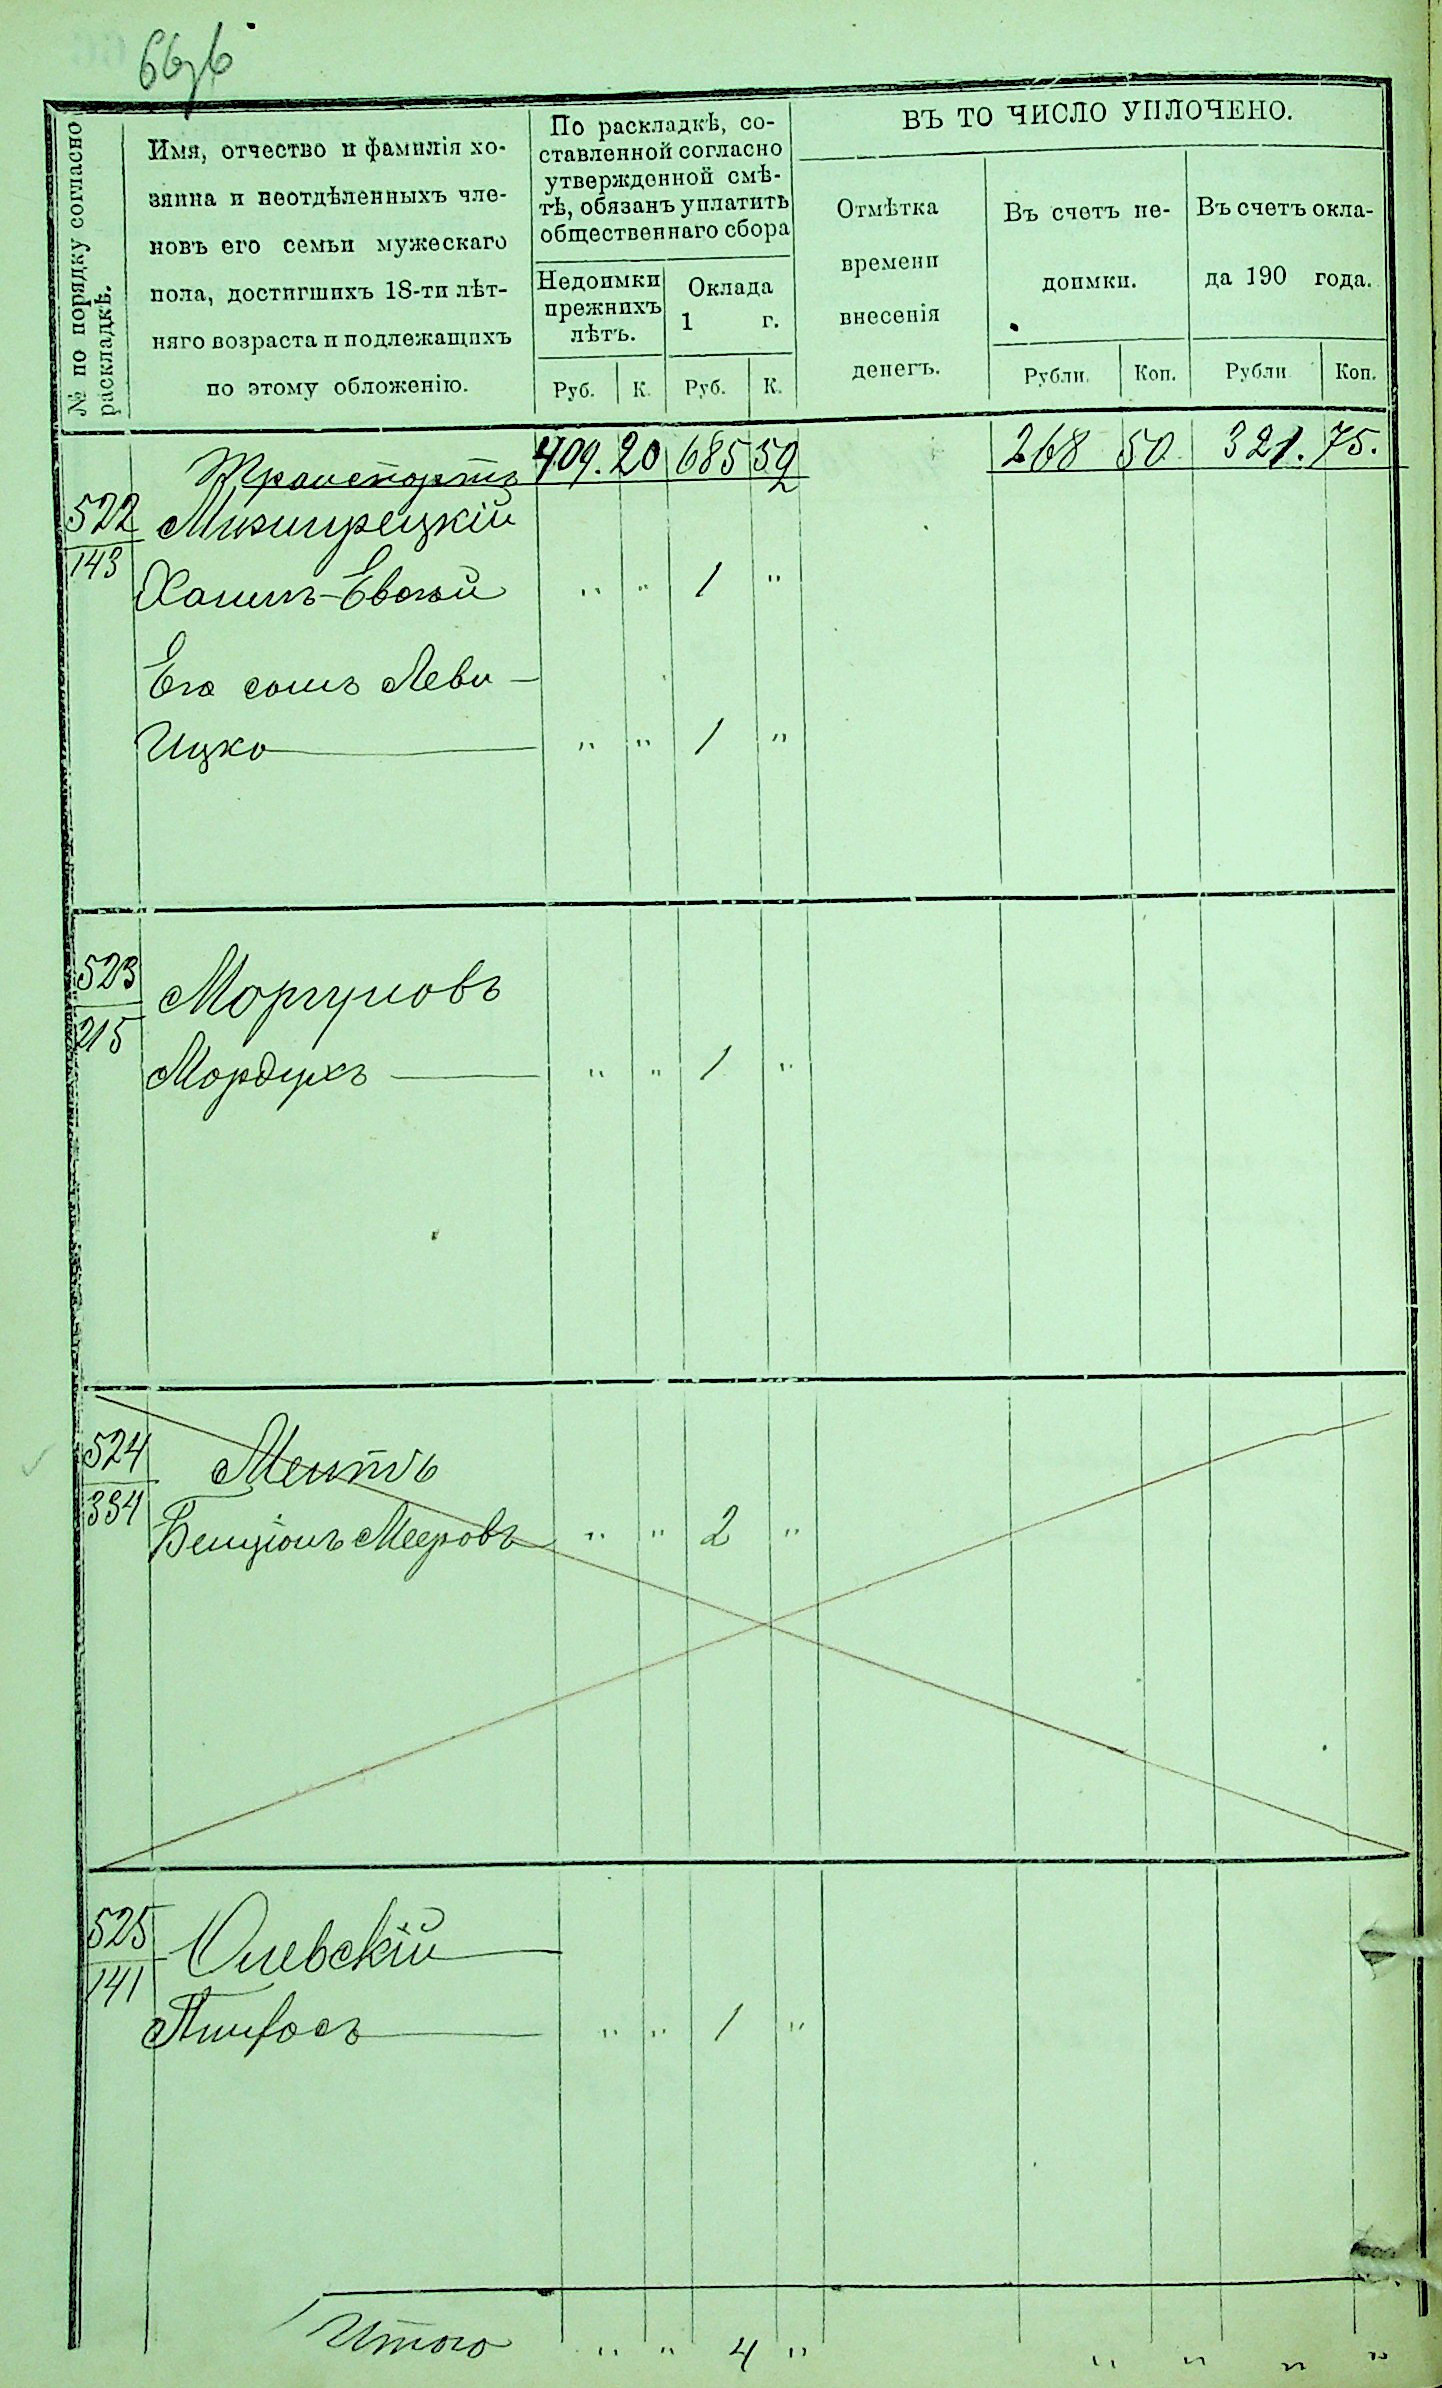 № по порядку согласно
раскладкѣ.
Имя, отчество и фамилія хо-
зяина и неотдѣленныхъ чле-
новъ его семьи мужескаго
пола, достигшихъ 18-ти лѣт-
няго возраста и подлежащихъ
по этому обложенію.
По раскладкѣ, со-
ставленной согласно
утвержденной смѣ-
тѣ, обязанъ уплатить
общественнаго сбора
Недоимки
прежнихъ
лѣтъ.
Оклада
1 г.
Руб. К. Руб. К.
ВЪ ТО ЧИСЛО УПЛОЧЕНО.
Отмѣтка
времени
внесенія
денегъ.
Въ счетъ не-
доимки.
Рубли. Коп.
Въ счетъ окла-
да 190 года.
Рубли Коп.
Транспортъ 409. 20 685 59 268 50 321. 75.
522
143
Мизирецкій
Хаимъ- " " 1 "
Его сынъ Леви-
Ицко " " 1 "
523
215
Моргуновъ
Мордухъ " " 1 "
524
334
Ментъ
Бенціонъ Мееровъ " " 2 "
525
141
Олевскій
Пинхосъ " " 1 "
Итого " " 4 " " " " "